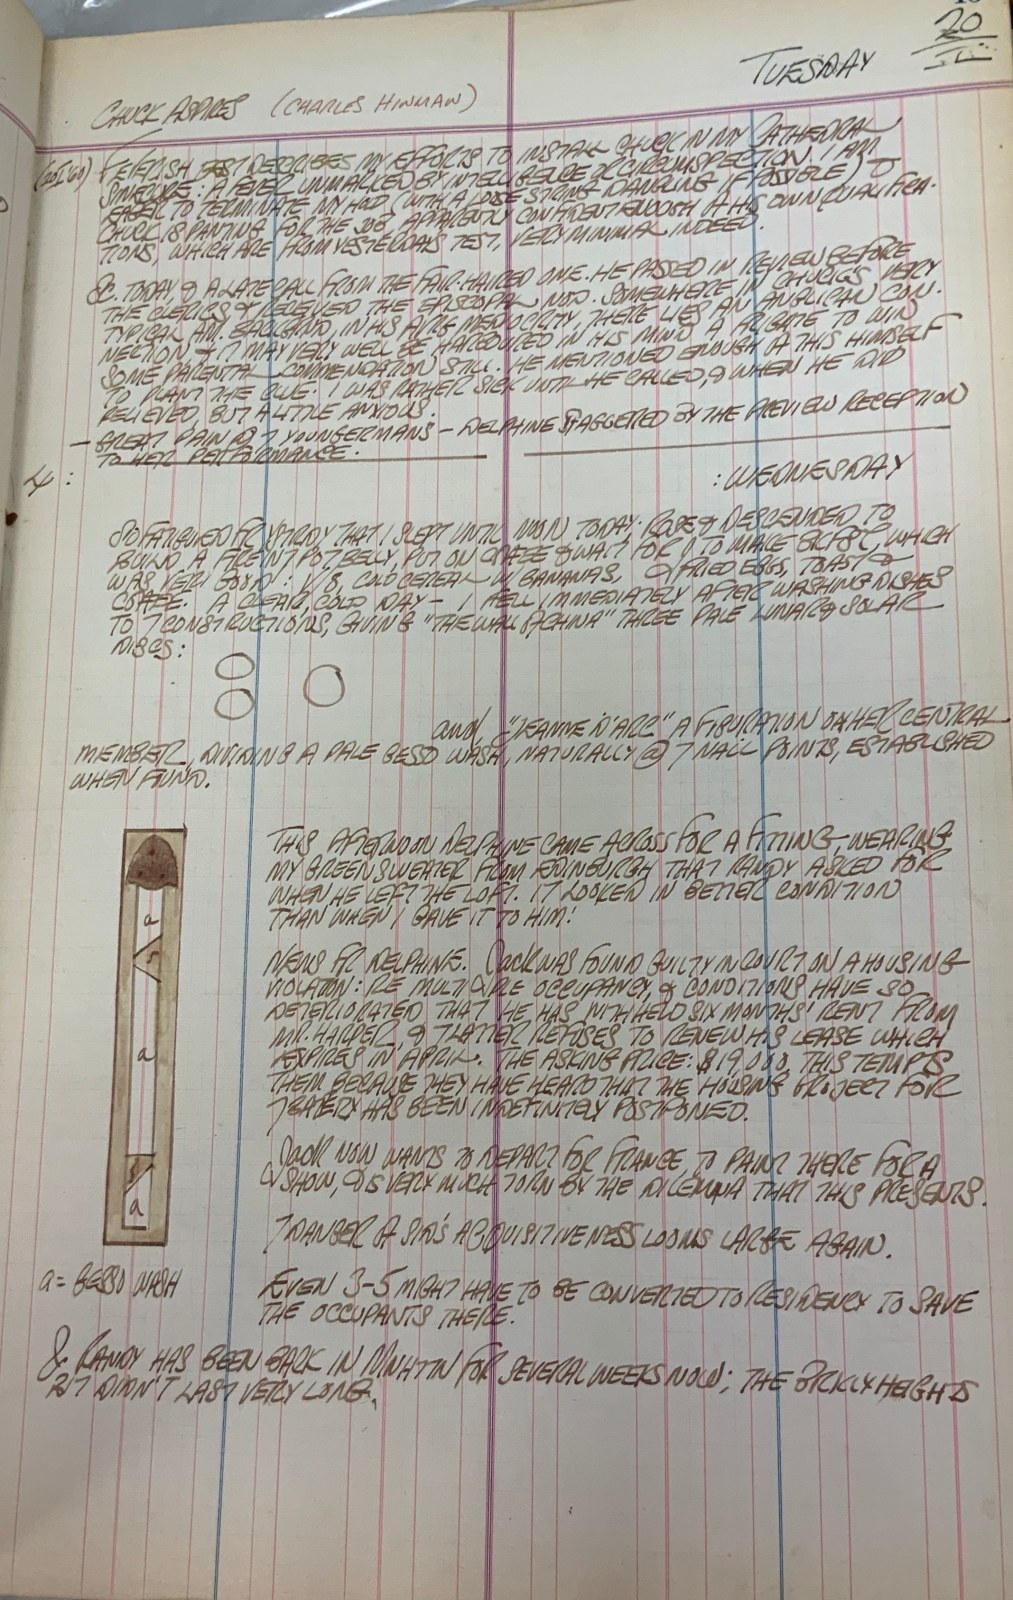 20
TUESDAY
CHUCK ASPIRES (CHARLES HINMAN)
FEVERISH BEST DESCRIBES MY EFFORTS TO INSTALL CHUCK IN MY CATHEDRAL
SINECURE: A FEVER UNMARKED BY INTELLIGENCE OR CIRCUMSPECTION. I AM
EAGER TO TERMINATE MY HOLD (WITH A LOOSE STRING DANGLING IF POSSIBLE) &
CHUCK IS PANTING FOR THE JOB, APPARENTLY CONFIDENT ENOUGH OF HIS OWN QUALIFICA-
TIONS, WHICH ARE FROM YESTERDAYS TEST, VERY MINIMAL INDEED.
&. TODAY, & A LATE CALL FROM THE FAIR-HAIRED ONE. HE PASSED IN REVIEW BEFORE
THE CLERICS & RECEIVED THE EPISCOPAL NOD. SOMEWHERE IN CHUCK'S VERY
TYPICAL AM. BACKGND, IN HIS MEDIOCRITY, THERE LIES AN ANGLICAN CON-
NECTION & IT MAY VERY WELL BE HARBOURED IN HIS MIND A TO WIN
SOME PARENTAL COMMENDATION STILL. HE MENTIONED ENOUGH OF THIS HIMSELF
TO PLANT THE CLUE. I WAS RATHER SICK UNTIL HE CALLED, & WHEN HE DID
RELIEVED, BUT A LITTLE ANXIOUS.
— GREAT PAIN @ 7 YOUNGERMANS – DELPHINE STAGGERED BY THE PREVIEW RECEPTION
TO HER PERFORMANCE.
: WEDNESDAY
SO FATIGUED FR YSTRDY THAT I SLEPT UNTIL NOON TODAY. ROSE & DESCENDED TO
BUILD A FIRE IN 7 POTBELLY, PUT ON COFFEE & WAIT FOR J TO MAKE BRKFST, WHICH
WAS VERY GOOD: V/8, COLD CEREAL W BANANAS, & FRIED EGGS, TOAST &
COFFEE. A CLEAR, COLD DAY – I FELL IMMEDIATELY AFTER WASHING DISHES
TO 7 CONSTRUCTIONS, GIVING "THE WALL OF CHINA" THREE PALE LUNAR & SOLAR
DISCS:
and, "JEANNE D'ARC" A FIGURATION ON HER CENTRAL
MEMBER, DIVIDING A PALE GESSO WASH, NATURALLY @ 7 NAIL POINTS, ESTABLISHED
WHEN FOUND.
THIS AFTERNOON DELPHINE CAME ACROSS FOR A FITTING, WEARING
MY GREEN SWEATER FROM EDINBURGH THAT RANDY ASKED FOR
WHEN HE LEFT THE LOFT. IT LOOKED IN BETTER CONDITION
THAN WHEN I GAVE IT TO HIM!
a
NEWS FR DELPHINE. Jack WAS FOUND GUILTY IN COURT ON A HOUSING
VIOLATION: RE MULTIPLE OCCUPANCY, & CONDITIONS HAVE SO
DETERIORATED THAT HE HAS WITHHELD SIX MONTHS' RENT FROM
MR. HARPER, & 7 LATTER REFUSES TO RENEW HIS LEASE WHICH
a
EXPIRES IN APRIL. THE ASKING PRICE: $19,000. THIS TEMPTS
THEM BECAUSE THEY HAVE HEARD THAT THE HOUSING PROJECT FOR
7 BATERY HAS BEEN INDEFINITELY POSTPONED.
Jack NOW WANTS TO DEPART FOR FRANCE, TO PAINT THERE FOR A
SHOW, & IS VERY MUCH TORN BY THE DILEMNA THAT THIS PRESENTS.
a
7 DANGER OF SID'S ACQUISITIVENESS LOOMS LARGE AGAIN.
a = GESSO WASH
EVEN 3–5 MIGHT HAVE TO BE CONVERTED TO RESIDENCY TO SAVE
THE OCCUPANTS THERE.
& RANDY HAS BEEN BACK IN MNHTTN FOR SEVERAL WEEKS NOW; THE BRKLY HEIGHTS
BIT DIDN'T LAST VERY LONG.